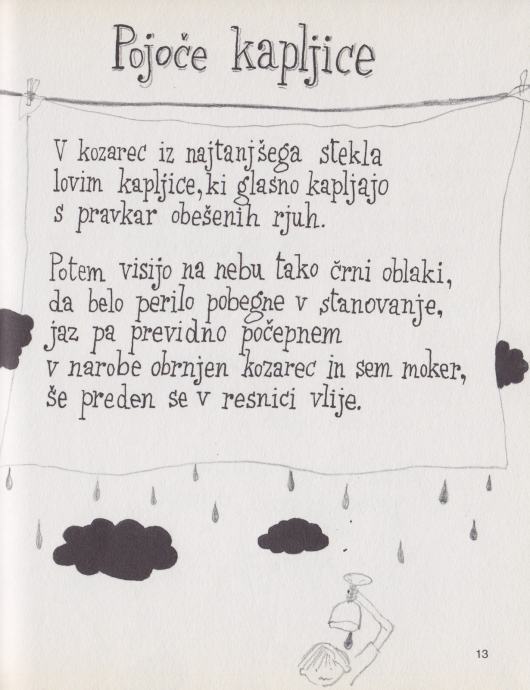 Pojoče kapljice
V kozarec iz najtanjšega stekla
lovim kapljice, ki glasno kapljajo
s pravkar obešenih rjuh.
Potem visijo na nebu tako črni oblaki,
da belo perilo pobegne v stanovanje,
jaz pa previdno počepnem
v narobe obrnjen kozarec in sem moker,
še preden se v resnici vlije.
13